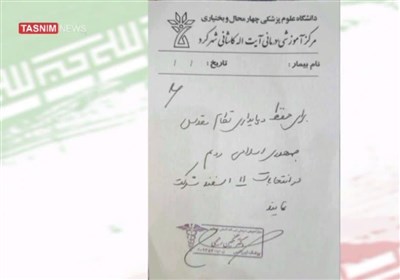 TASNIM NEWS
دانشگاه علوم پزشکی چهارمحال و بختیاری
مرکز آموزشی درمانی آیت اله کاشانی شهرکرد
نام بیمار : تاریخ : / /
برای حفظ و پایداری نظام مقدس
جمهوری اسلامی
در انتخابات ۱۱ اسفند شرکت
نمایند